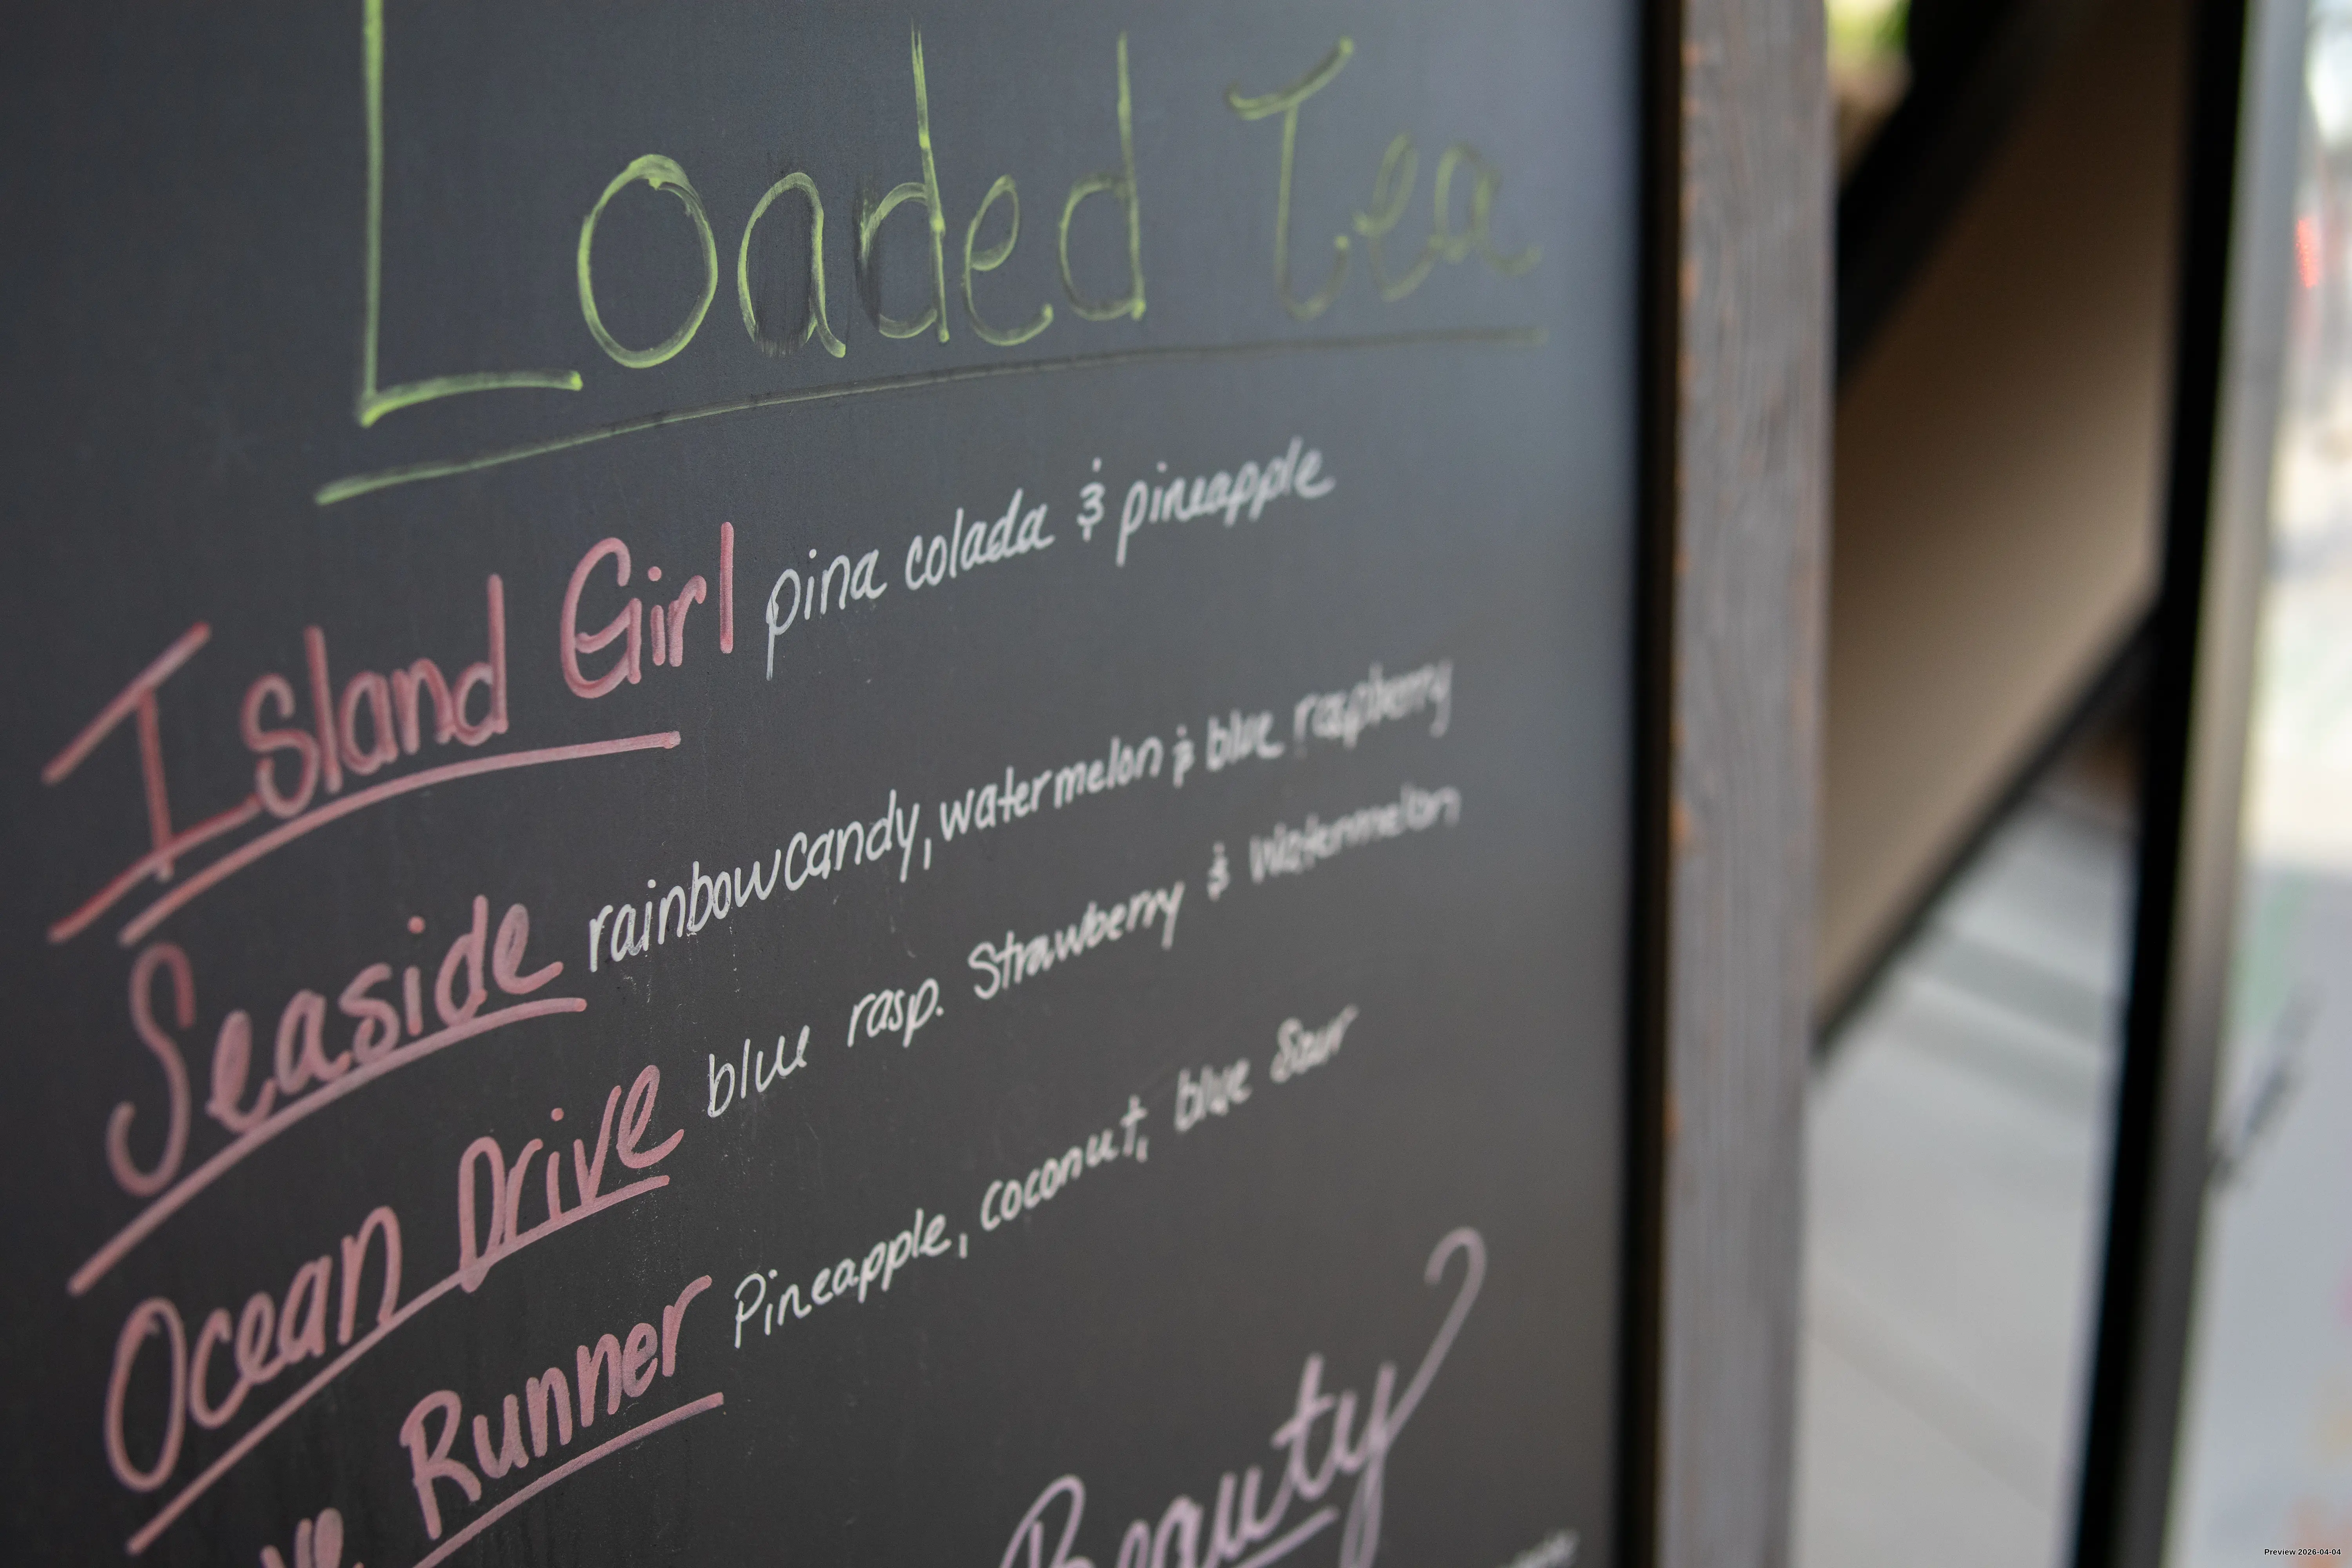 Loaded Tea
Island Girl pina colada & pineapple
Seaside rainbow candy, watermelon & blue raspberry
Ocean Drive blue rasp. Strawberry & Watermelon
Runner Pineapple, coconut, blue Sour
Beauty
Preview 2026-04-04